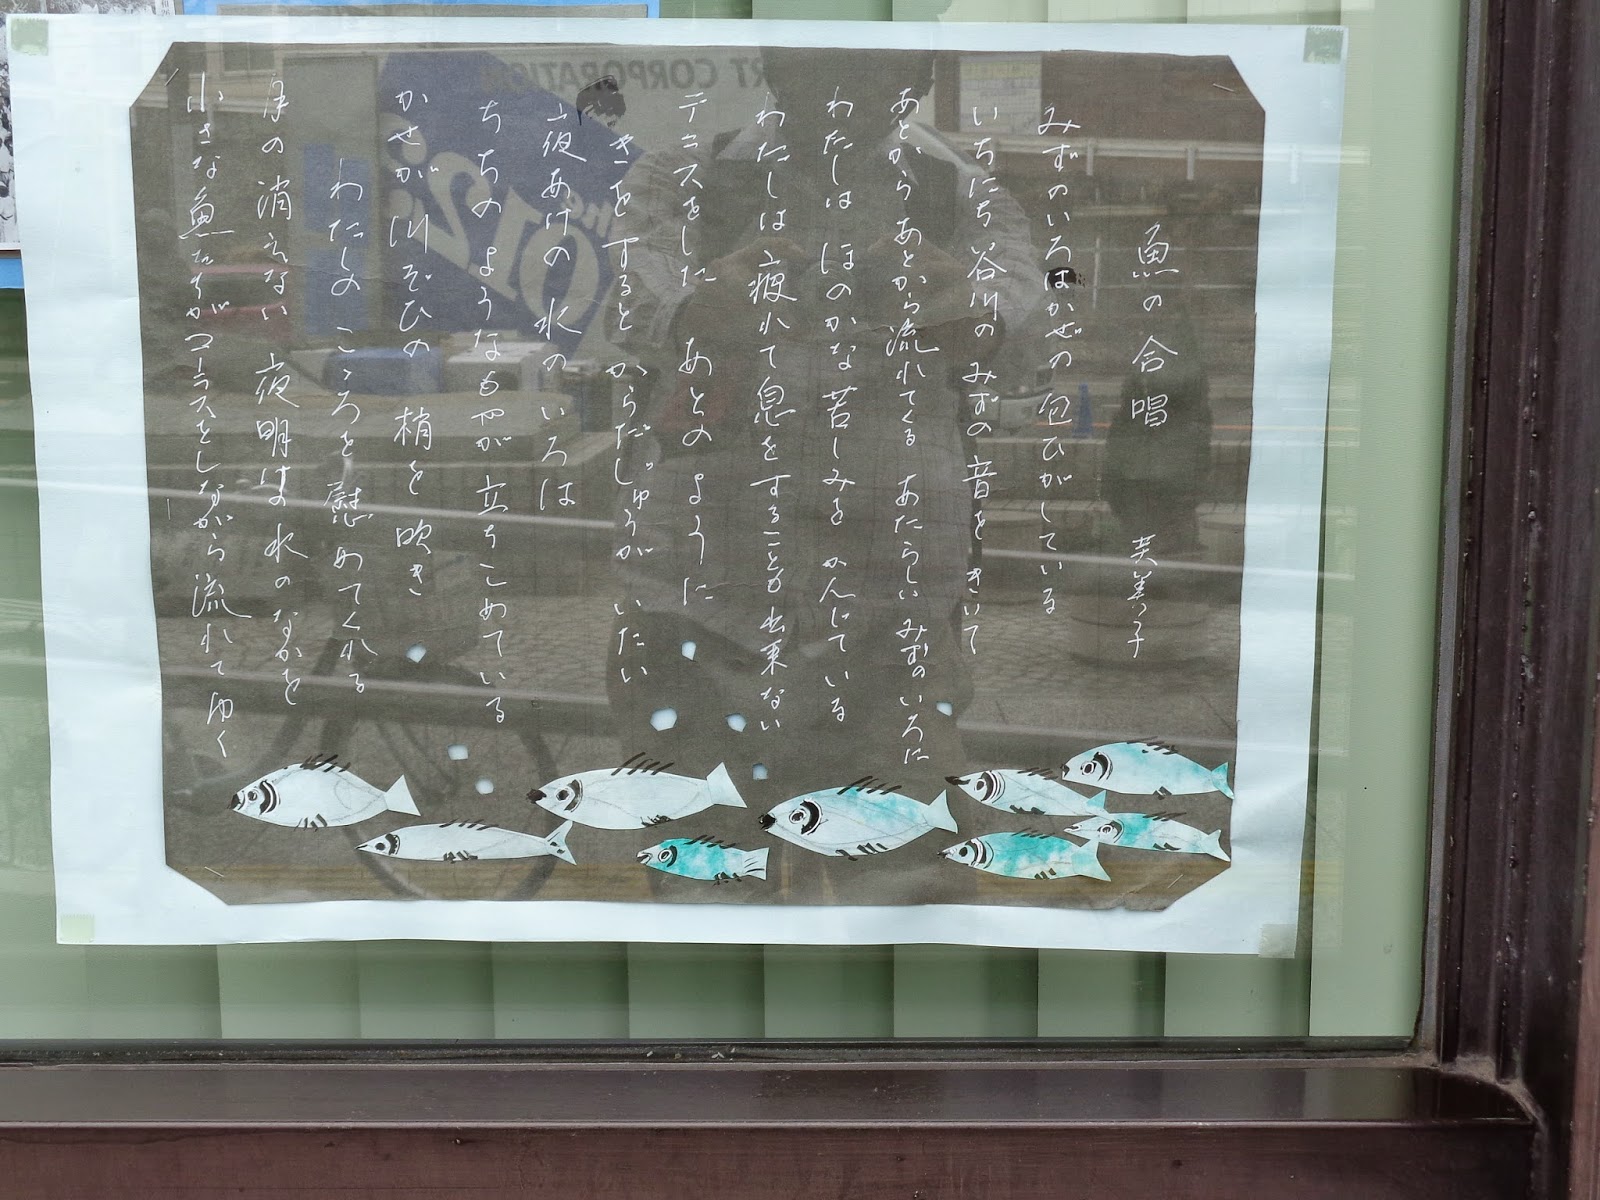 魚の合唱　芙美子
みずのいろはかぜの匂ひがしている
いちにち谷川のみずの音をきいて
あとからあとから流れてくる あたらしいみずのいろに
わたしは ほのかな苦しみを かんじている
わたしは疲れて息をすることも出来ない
テニスをした あとの ように
いきをすると からだじゅうが いたい
夜あけの 水のいろは
ちちのようなもやが 立ちこめている
かぜが川ぞひの 梢を吹き
わたしの こころを 慰めてくれる
月の消えない 夜明は水のなかを
小さな魚たちがコーラスをしながら流れてゆく
RT CORPORATION